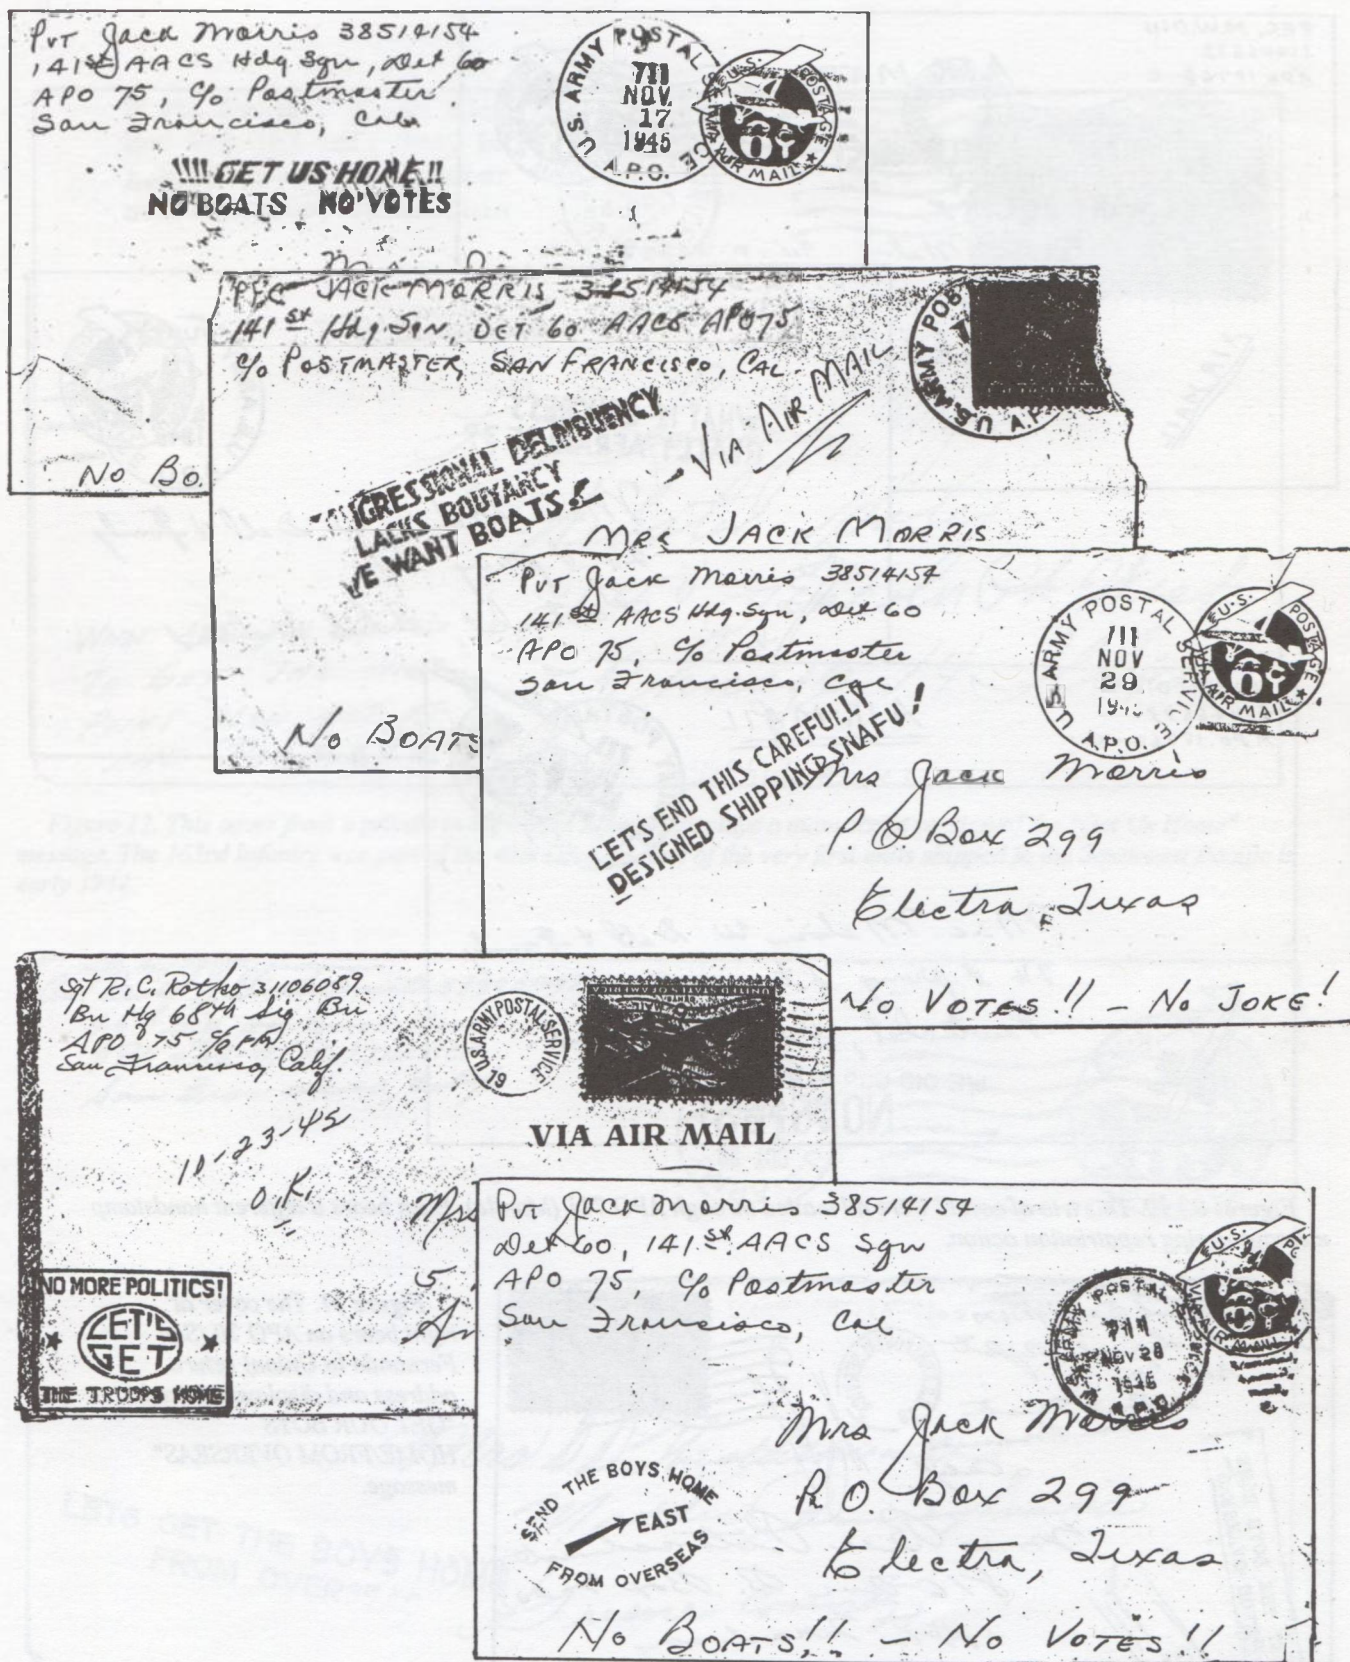 Pvt Jack Morris 38514154
141st AACS Hdq Sqn, Det 60
APO 75, c/o Postmaster
San Francisco, Cal
U.S. ARMY POSTAL
NOV.
17
1945
A.P.O.
U.S. POSTAGE
AIR MAIL
!!!! GET US HOME !!
NO BOATS NO VOTES
No Bo
PFC JACK MORRIS, 38514154
141st Hdq. Sqn, DET 60 AACS APO 75
c/o POSTMASTER, SAN FRANCISCO, CAL.
U.S. ARMY POS
A.P.
VIA AIR MAIL
NGRESSIONAL DELINQUENCY
LACKS BOUYANCY
WE WANT BOATS!
MRS JACK MORRIS
No BOATS
Pvt Jack Morris 38514154
141st AACS Hdq. Sqn, Det 60
APO 75, c/o Postmaster
San Francisco, Cal
U.S. ARMY POSTAL SERVICE
NOV
29
194
A.P.O.
U.S. POSTAGE
VIA AIR MAIL
LET'S END THIS CAREFULLY
DESIGNED SHIPPING SNAFU!
Mrs Jack Morris
P.O. Box 299
Electra, Texas
No VOTES!! - No JOKE!
Sgt R.C. Rotko 31106089
Bn Hq 68th Sig Bn
APO 75 c/o PM
San Francisco, Calif.
U.S. ARMY POSTAL SERVICE
19
VIA AIR MAIL
10-23-45
O.K.
Mrs
5
An
NO MORE POLITICS!
LET'S
GET
THE TROOPS HOME
Pvt Jack Morris 38514154
Det 60, 141st AACS Sqn
APO 75, c/o Postmaster
San Francisco, Cal
POSTAL
NOV 28
1945
A.P.O.
U.S. P
VIA AIR MAIL
Mrs Jack Morris
P.O. Box 299
Electra, Texas
SEND THE BOYS HOME
EAST
FROM OVERSEAS
No BOATS!! - No VOTES!!